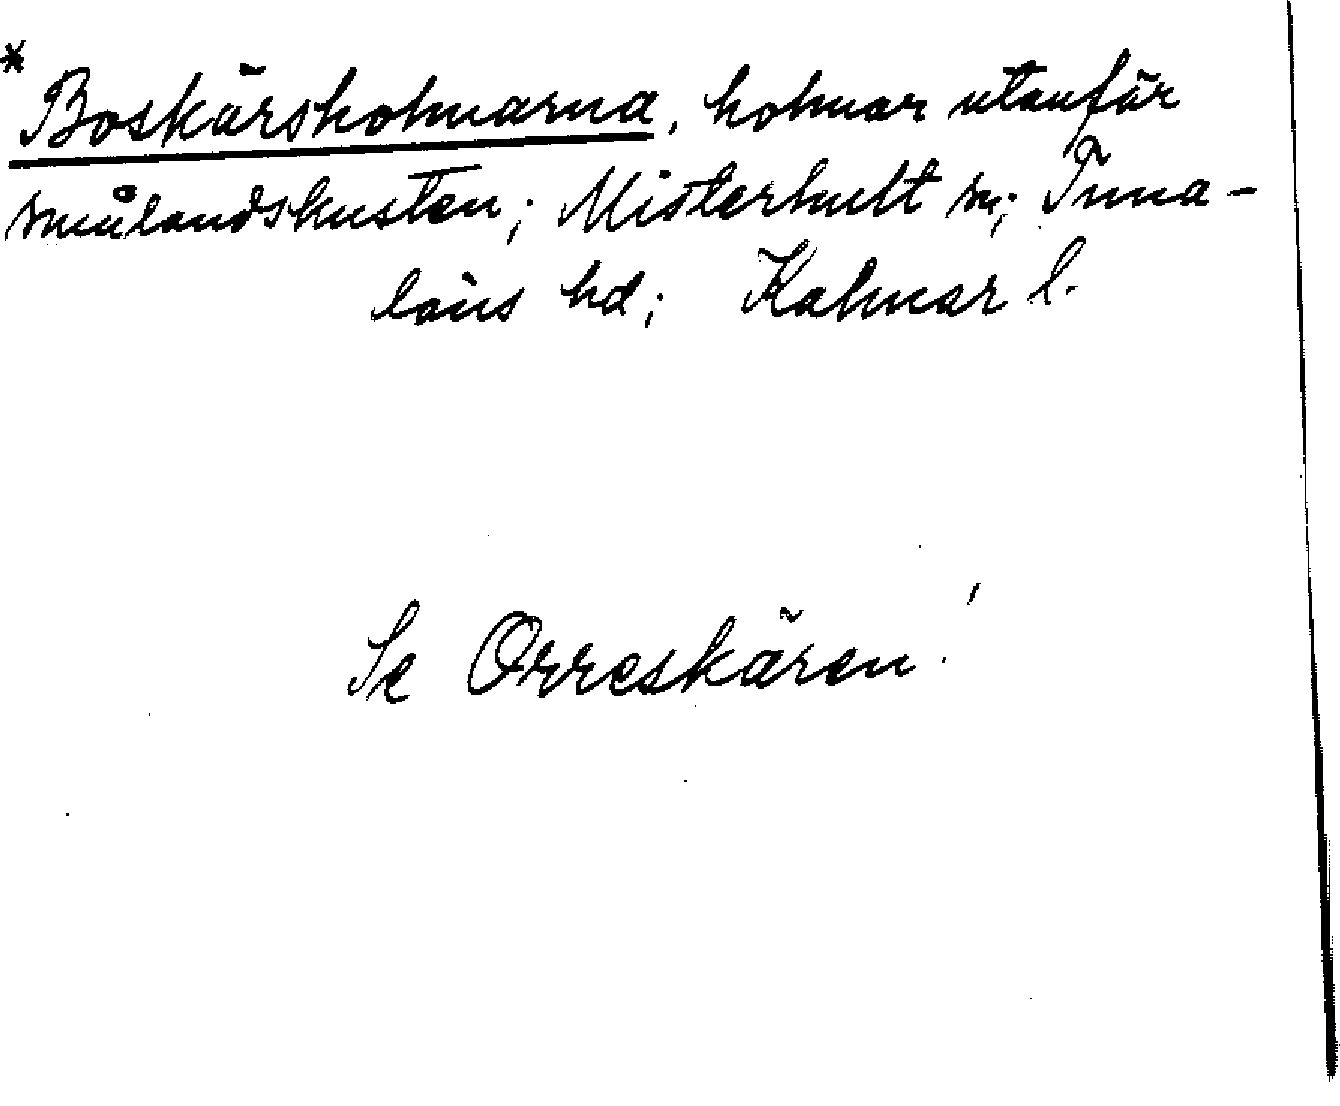 * Boskärsholmarna, holmar utanför
smålandskusten; Misterhult sn; Tuna-
läns hd; Kalmar l.
Se Orreskären!